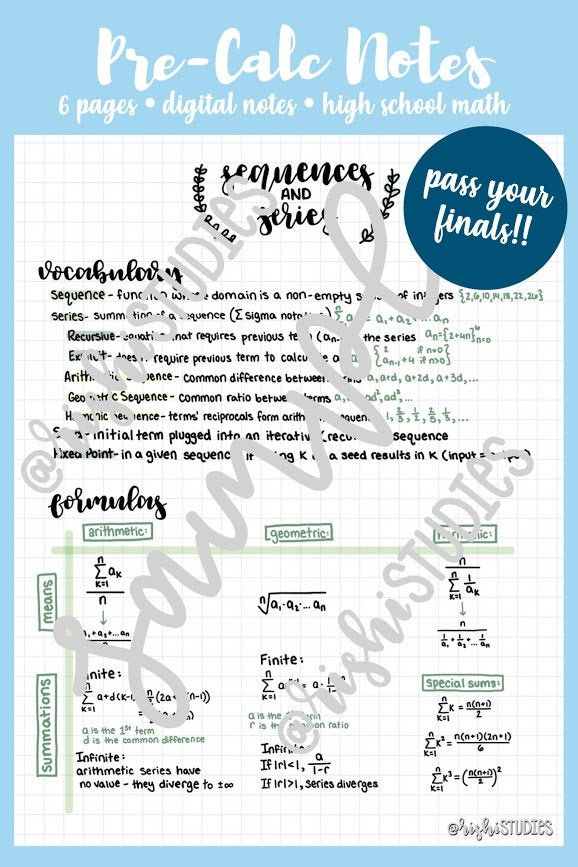 Pre-Calc Notes
6 pages • digital notes • high school math
pass your
finals!!
sequences
AND
series
vocabulary
Sequence - function whose domain is a non-empty of integers {2,6,10,14,18,22,26}
series - summation of a sequence (Σ sigma notation) = a₁ + a₂ + ... aₙ
Recursive - that requires previous term the series aₙ={2+4n}⁶ₙ₌₀
Explicit - does require previous term to calculate {2 if n=0
aₙ₋₁+4 if n>0
Arithmetic Sequence - common difference between terms a, a+d, a+2d, a+3d,...
Geometric Sequence - common ratio between terms
Harmonic Sequence - terms' reciprocals form arithmetic sequence 1, 2/3, 1/2, 2/5, 1/3,...
Seed - initial term plugged into an iterative sequence
Fixed Point - in a given sequence if using K as a seed results in K (input = output)
formulas
arithmetic:
geometric:
harmonic:
means
n
Σ aₖ
K=1
n
↓
a₁+a₂+...aₙ
n
ⁿ√a₁·a₂...aₙ
n
n
Σ 1/aₖ
K=1
↓
n
1/a₁ + 1/a₂ + ...1/aₙ
summations
Finite:
n
Σ a+d(K-1)
K=1
a is the 1ˢᵗ term
d is the common difference
Infinite:
arithmetic series have
no value - they diverge to ±∞
Finite:
n
Σ
K=1
a is the term
r is the common ratio
Infinite:
If |r|<1, a/1-r
If |r|>1, series diverges
special sums:
n
Σ K = n(n+1)/2
K=1
n
Σ K² = n(n+1)(2n+1)/6
K=1
n
Σ K³ = (n(n+1)/2)²
K=1
@rishiSTUDIES
sample
@rishiSTUDIES
@rishiSTUDIES